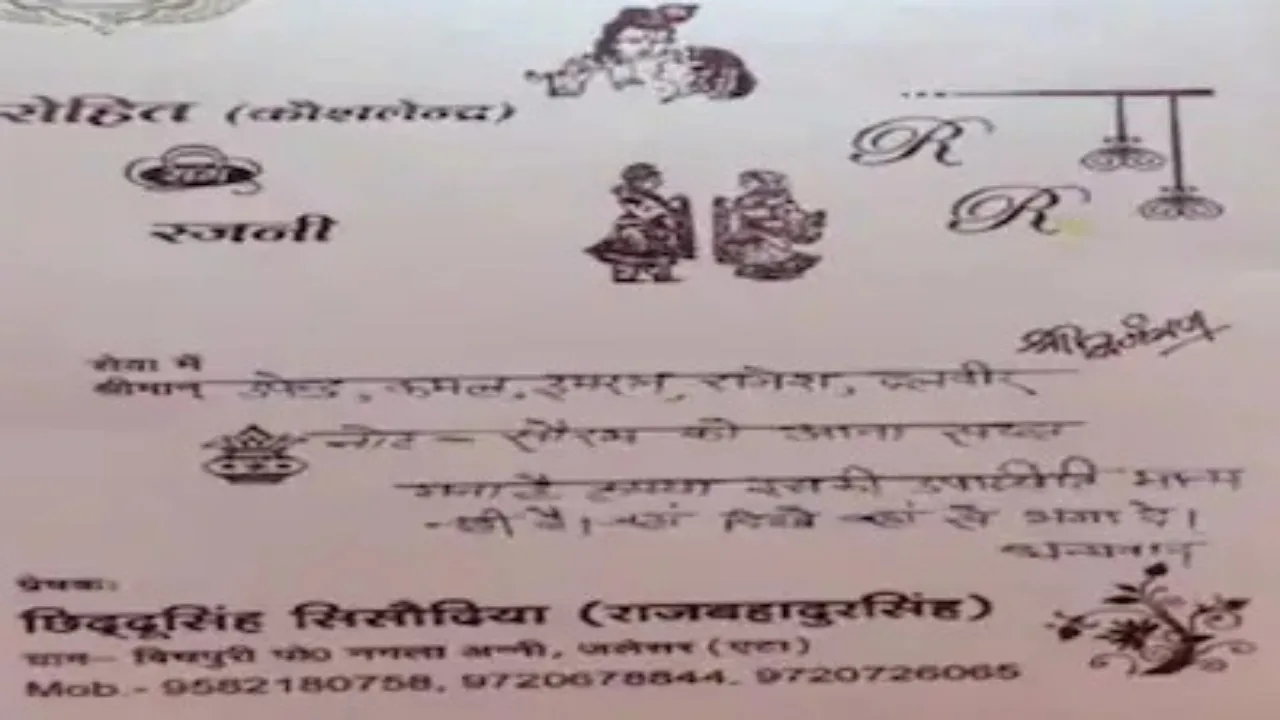 रोहित (कौशलेन्द्र)
संग
रजनी
R
R
श्री निमंत्रण
सेवा में
श्रीमान् उपेन्द्र, कमल, इमरान, राजेश, बलवीर
नोट - सौरभ को आना सख्त
मना है कृपया इसकी उपस्थिति मान्य
नहीं है। जहां दिखे वहां से भगा दे।
धन्यवाद
प्रेषकः
छिद्दूसिंह सिसौदिया (राजबहादुरसिंह)
ग्राम– विचपुरी पो0 नगला अन्नी, जलेसर (एटा)
Mob.- 9582180758, 9720678844. 9720726065